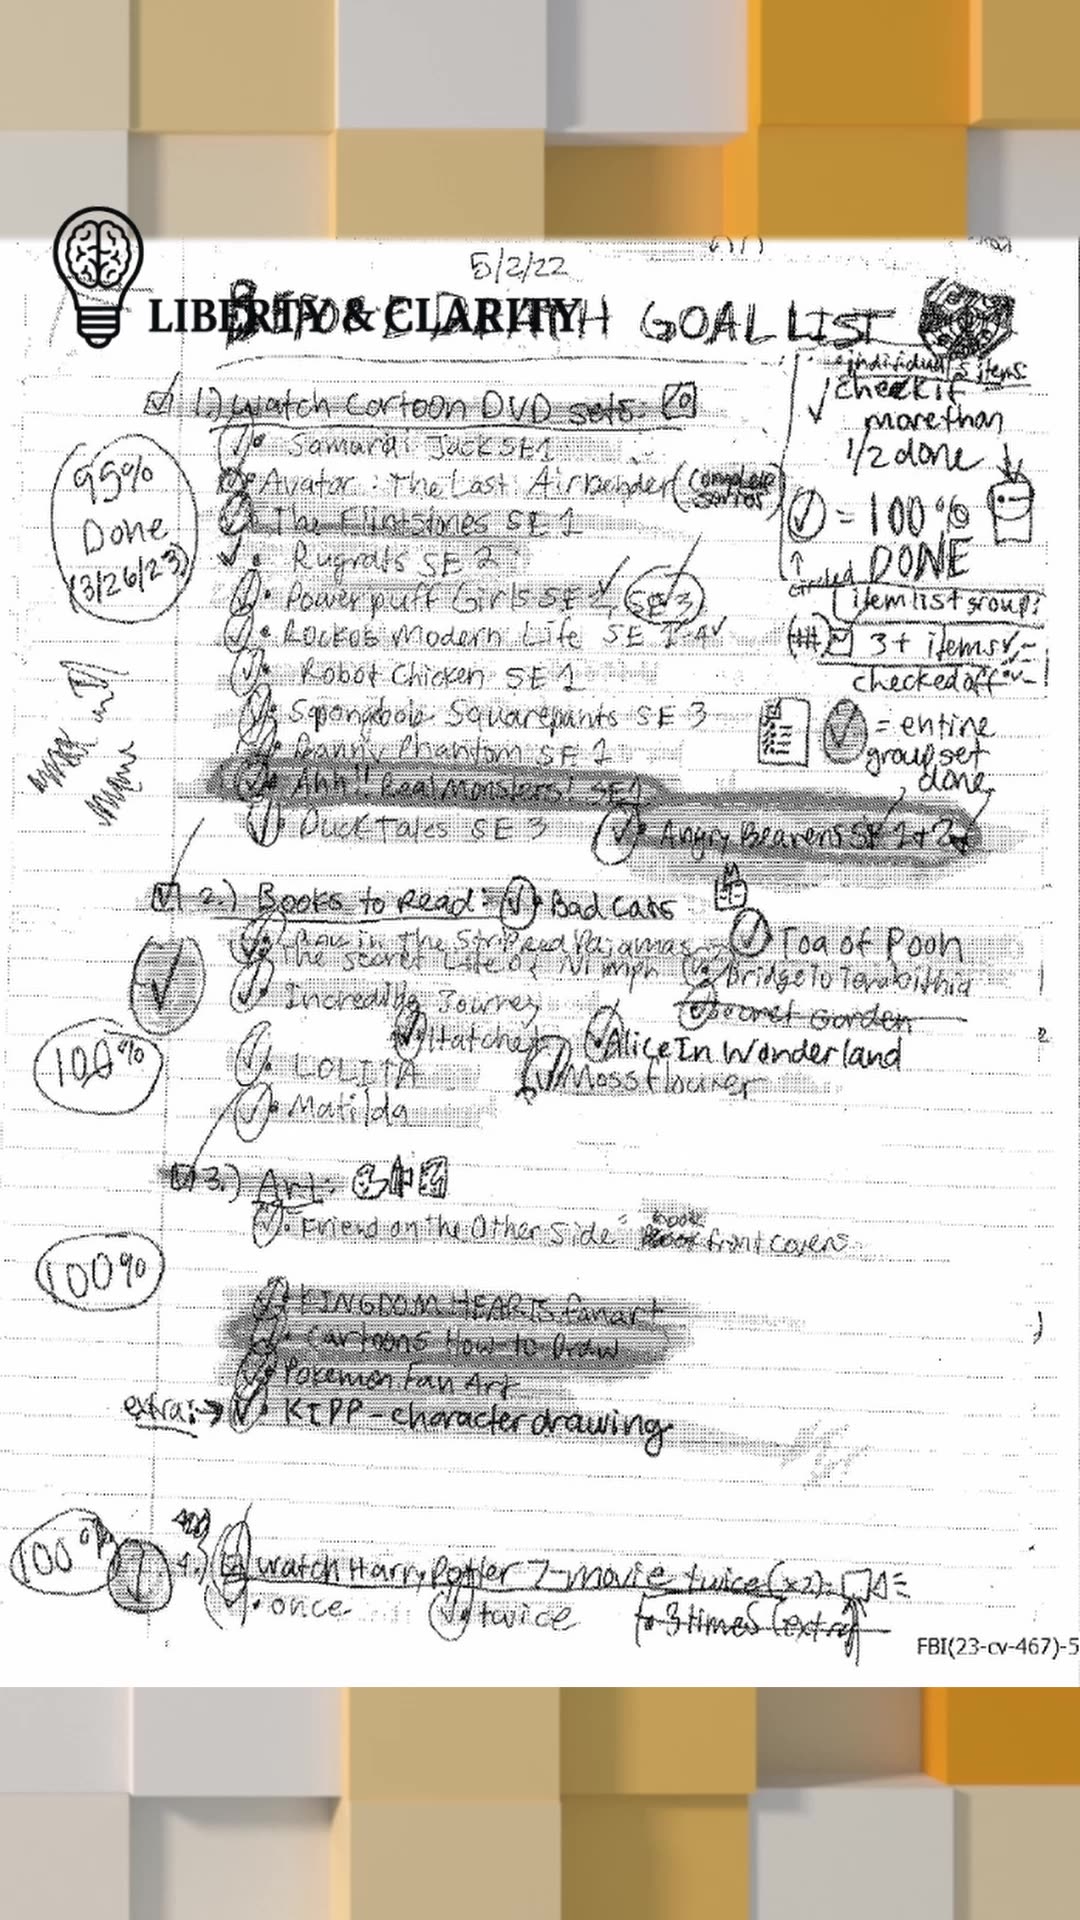 5/2/22
LIBERTY & CLARITY
BEFORE DEATH GOAL LIST
individual items:
✓ check if
more than
1/2 done
✓ = 100%
DONE
circled
item list group:
(##) ☑ 3+ items ✓
checked off
✓ = entire
group set
done
1.) Watch Cartoon DVD sets:
• Samurai Jack SE 1
• Avatar: The Last Airbender (complete series)
• The Flintstones SE 1
• Rugrats SE 2
• Powerpuff Girls SE 2, SE 3
• Rocko's Modern Life SE 1-4
• Robot Chicken SE 1
• Spongebob Squarepants SE 3
• Danny Phantom SE 1
• Ahh!! Real Monsters! SE 1
• Duck Tales SE 3
• Angry Beavers SE 1+2
95%
Done
(3/26/23)
2.) Books to Read:
Bad Cats
• Boy in The Striped Pajamas
Toa of Pooh
The Secret Life of Nimph
Bridge to Terabithia
• Incredible Journey
Secret Garden
Hatchet
Alice In Wonderland
• LOLITA
Mossflower
• Matilda
100%
3.) Art:
• Friend on the Other Side: book front covers
100%
• KINGDOM HEARTS fanart
• Cartoons How-to Draw
• Pokemon Fan Art
extra: → • KIPP - character drawing
100%
4.) Watch Harry Potter 7-movie twice (x2):
• once
• twice
• 3 times (extra)
FBI(23-cv-467)-5